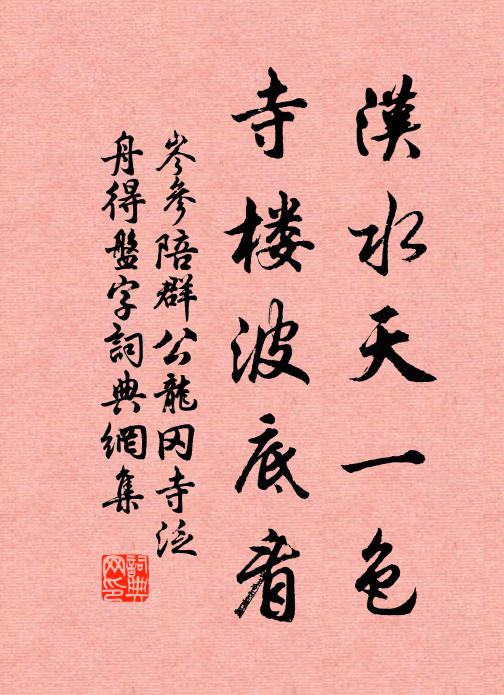 漢水天一色
寺楼波底看
岑參陪群公龍岡寺泛
舟得盤字詞典網集
詞典网印